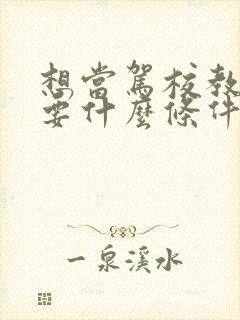 想當駕校教
要什麼條件
一泉溪水